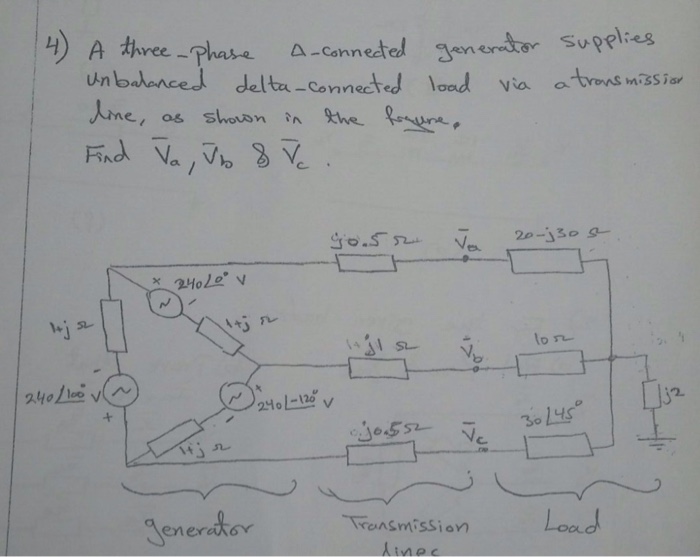 4) A three-phase Δ-connected generator supplies
unbalanced delta-connected load via a transmission
line, as shown in the
Find V̄a, V̄b & V̄c .
j0.5 Ω V̄a 20-j30 Ω
+ 240∠0° V -
1+j Ω 1+j Ω
1+j1 Ω V̄b 10Ω
- 240∠100° V +
+ 240∠-120° V -
j2
1+j Ω
j0.5Ω V̄c 30∠45°
generator Transmission lines Load